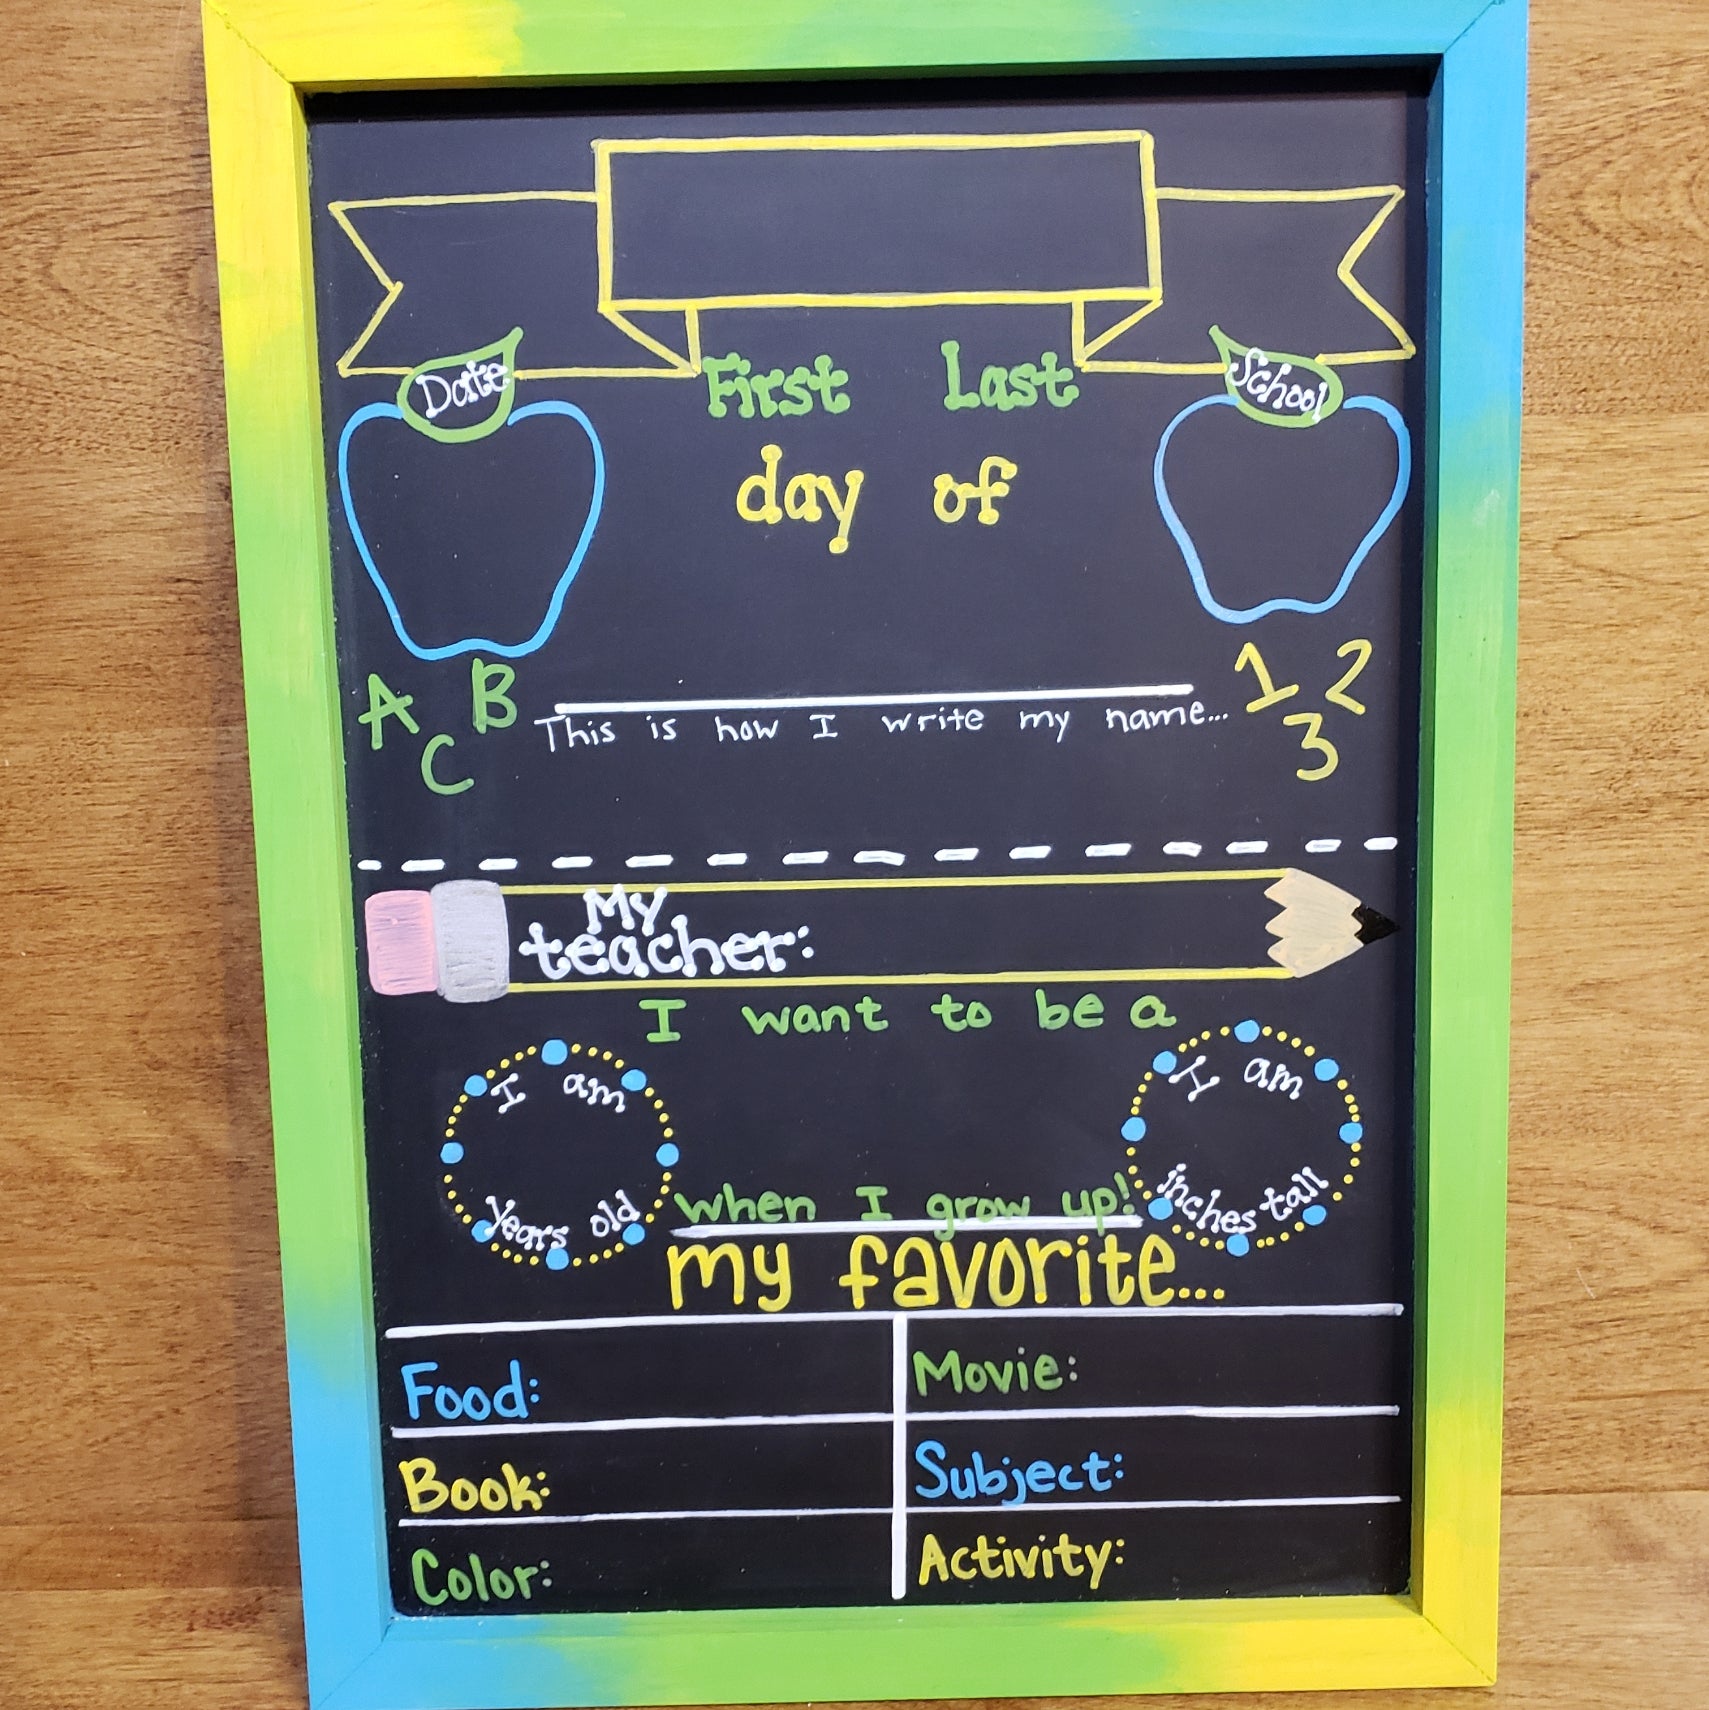 Date
First Last
School
day of
A B
C
1 2
3
This is how I write my name...
My
teacher:
I want to be a
I am
years old
I am
inches tall
when I grow up!
my favorite...
Food:
Movie:
Book:
Subject:
Color:
Activity: